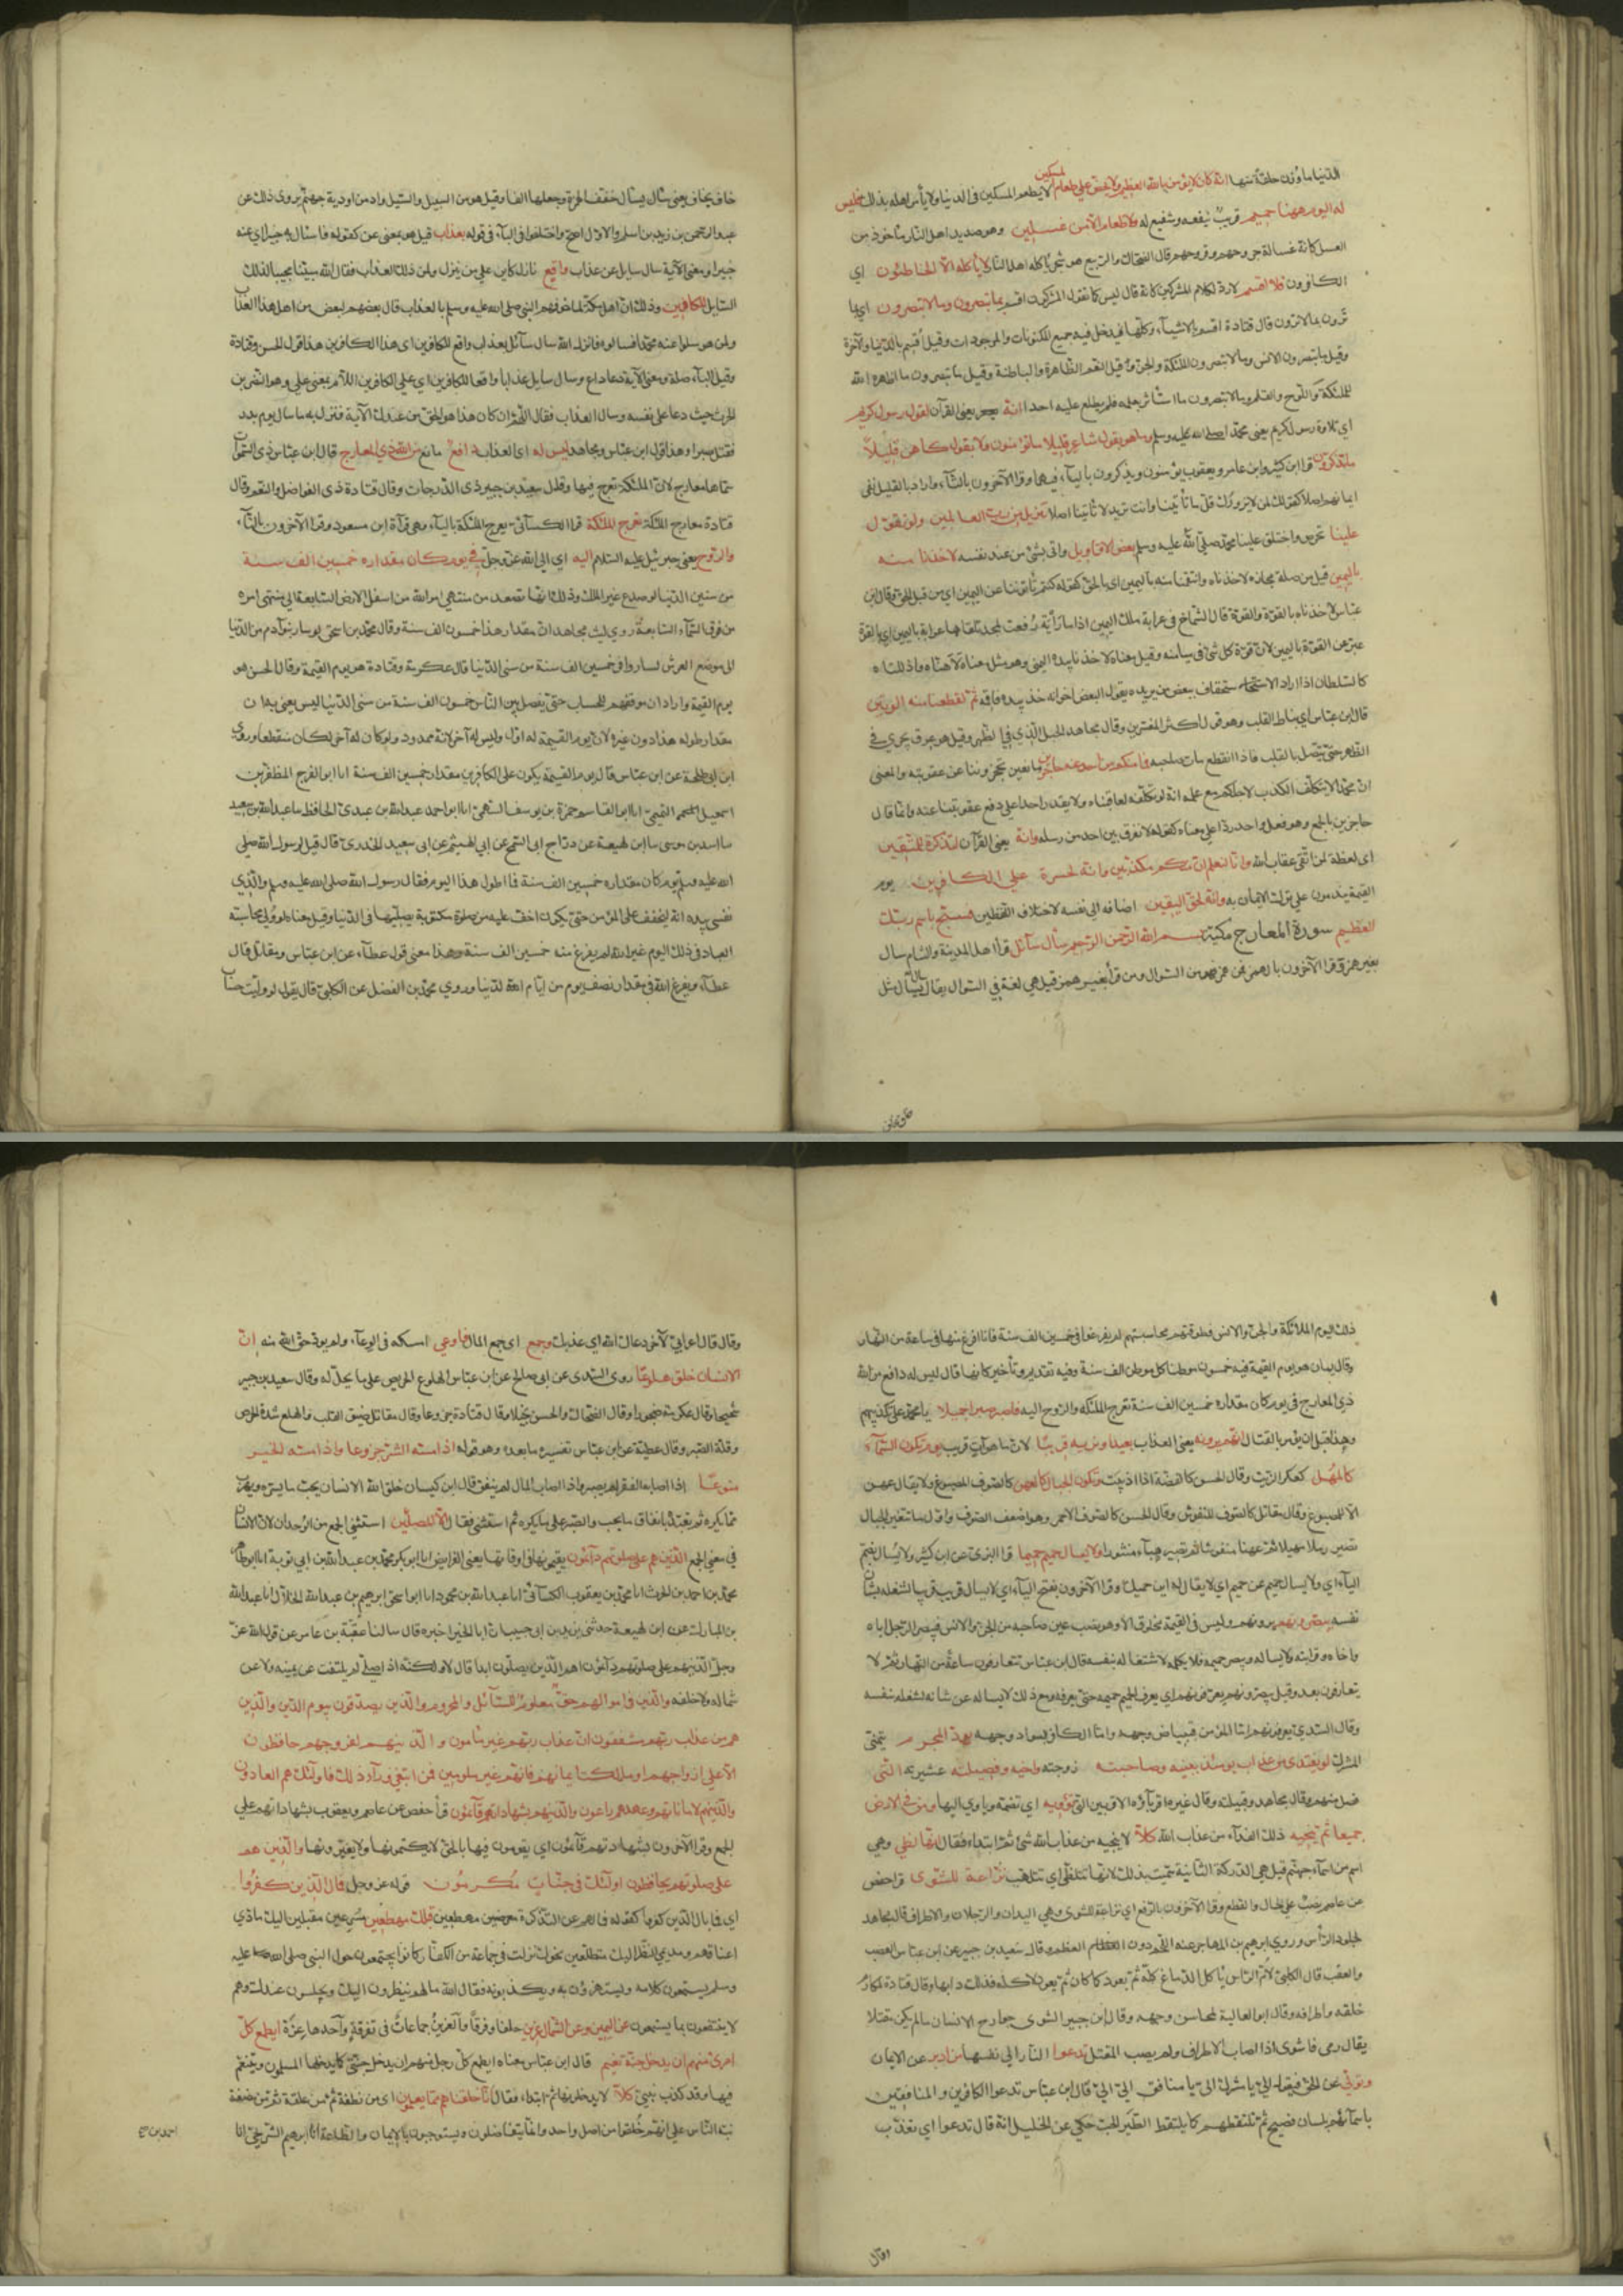 الدنيا ما وزن حلقة منها انه كان لا يؤمن بالله العظيم ولا يحض علي طعام المسكين لا يطعم المسكين في الدنيا ولا يأمر اهله بذلك فليس
له اليوم ههنا حميم قريب ينفعه ويشفع له ولا طعام الا من غسلين وهو صديد اهل النار ماخوذ من
الغسل كانه غسالة جروحهم وقروحهم قال الضحاك والربيع هو شجر ياكله اهل النار لا ياكله الا الخاطئون اي
الكافرون فلا اقسم لا رد لكلام المشركين كانه قال ليس كما يقول المشركون اقسم بما تبصرون وما لا تبصرون اي بما
ترون وبما لا ترون قال قتادة اقسم بالاشياء كلها فيدخل فيه جميع المكونات والموجودات وقيل اقسم بالدنيا والآخرة
وقيل ما تبصرون الانس وما لا تبصرون الملئكة والجن وقيل النعم الظاهرة والباطنة وقيل ما تبصرون ما اظهره الله
للملئكة واللوح والقلم وما لا تبصرون ما استأثر بعلمه فلم يطلع عليه احدا انه يعني القرآن لقول رسول كريم
اي تلاوة رسول كريم يعني محمدا صلى الله عليه وسلم وما هو بقول شاعر قليلا ما تؤمنون ولا بقول كاهن قليلا
ما تذكرون قرا ابن كثير وابن عامر ويعقوب يؤمنون ويذكرون بالياء فيهما وقرا الآخرون بالتاء واراد بالقليل نفي
ايمانهم اصلا كقولك لمن لا يزورك قل ما تأتينا وانت تريد لا تأتينا اصلا تنزيل من رب العالمين ولو تقول
علينا تخرص واختلق علينا محمد صلى الله عليه وسلم بعض الاقاويل واتى بشئ من عند نفسه لاخذنا منه
باليمين قيل من صلة مجازه لاخذناه وانتقمنا منه باليمين اي بالحق كقوله كنتم تأتوننا عن اليمين اي من قبل الحق وقال ابن
عباس لاخذناه بالقوة والقدرة قال الشماخ في عرابة ملك اليمين اذا ما رأية رفعت لمجد تلقاها عرابة باليمين اي بالقوة
عبر عن القوة باليمين لان قوة كل شئ في ميامنه وقيل معناه لاخذنا بيده اليمنى وهو مثل معناه لاهناه واذللناه
كالسلطان اذا اراد الاستخفاف ببعض من يريده يقول لبعض اعوانه خذ بيده فاقمه ثم لقطعنا منه الوتين
قال ابن عباس اي نياط القلب وهو قول اكثر المفسرين وقال مجاهد الحبل الذي في الظهر وقيل هو عرق يجري في
الظهر حتى يتصل بالقلب فاذا انقطع مات صاحبه فما منكم من احد عنه حاجزين مانعين يحجزوننا عن عقوبته والمعنى
ان محمدا لا يتكلف الكذب لاجلكم مع علمه انه لو تكلفه لعاقبناه ولا يقدر احد على دفع عقوبتنا عنه وانما قال
حاجزين بالجمع وهو فعل واحد ردا على معناه كقوله لا نفرق بين احد من رسله وانه يعني القرآن لتذكرة للمتقين
اي لعظة لمن اتقى عقاب الله وانا لنعلم ان منكم مكذبين وانه لحسرة على الكافرين يوم
القيمة يندمون على ترك الايمان به وانه لحق اليقين اضافه الى نفسه لاختلاف اللفظين فسبح باسم ربك
العظيم سورة المعارج مكية بسم الله الرحمن الرحيم سأل سآئل قرأ اهل المدينة والشام سال
بغير همز وقرا الآخرون بالهمز فمن همز فهو من السوال ومن قرأ بغير همز قيل هي لغة في السوال يقال سال يسال مثل
خاف يخاف يعني سأل يسأل خفف الهمزة وجعلها الفا وقيل هو من السيل والسيل واد من اودية جهنم يروى ذلك عن
عبد الرحمن بن زيد بن اسلم والاول اصح واختلفوا في الباء في قوله بعذاب قيل هو بمعنى عن كقوله فاسئال به خبيرا اي عنه
خبيرا ومعنى الآية سال سايل عن عذاب واقع نازل كاين على من ينزل ولمن ذلك العذاب فقال الله مبينا مجيبا لذلك
السايل للكافرين وذلك ان اهل مكة لما خوفهم النبي صلى الله عليه وسلم بالعذاب قال بعضهم لبعض من اهل هذا العذاب
ولمن هو سلوا عنه محمدا فسالوه فانزل الله سال سآئل بعذاب واقع للكافرين اي هذا للكافرين هذا قول الحسن وقتادة
وقيل الباء صلة ومعنى الآية دعا داع وسال سايل عذابا واقعا للكافرين اي على الكافرين اللام بمعنى على وهو النضر بن
الحرث حيث دعا على نفسه وسال العذاب فقال اللهم ان كان هذا هو الحق من عندك الآية فنزل به ما سال يوم بدر
فقتل صبرا وهذا قول ابن عباس ومجاهد ليس له اي العذاب دافع مانع من الله ذي المعارج قال ابن عباس ذي السموات
سماها معارج لان الملئكة تعرج فيها وقال سعيد بن جبير ذي الدرجات وقال قتادة ذي الفواضل والنعم وقال
قتادة معارج الملئكة تعرج الملئكة قرا الكسآئي يعرج الملئكة بالياء وهي قرآة ابن مسعود وقرا الآخرون بالتاء
والروح يعني جبرئيل عليه السلام اليه اي الى الله عز وجل في يوم كان مقداره خمسين الف سنة
من سنين الدنيا لو صعد غير الملك وذلك انها تصعد من منتهى امر الله من اسفل الارض السابعة الى منتهى امره
من فوق السماء السابعة روى ليث مجاهد ان مقدار هذا خمسون الف سنة وقال محمد بن اسحق لو سار بنو آدم من الدنيا
الى موضع العرش لساروا في خمسين الف سنة من سني الدنيا قال عكرمة وقتادة هو يوم القيمة وقال الحسن هو
يوم القيمة واراد ان موقفهم للحساب حتى يفصل بين الناس خمسون الف سنة من سني الدنيا ليس يعني به ان
مقدار طوله هذا دون غيره لان يوم القيمة له اول وليس له آخر لانه ممدود ولو كان له آخر لكان منقطعا وروى
ابن ابي طلحة عن ابن عباس قال يوم القيمة يكون على الكافرين مقدار خمسين الف سنة انا ابو الفرج المظفر بن
اسمعيل التميمي انا ابو القاسم حمزة بن يوسف السهمي انا ابو احمد عبد الله بن عدي الحافظ ما عبد الله بن سعيد
ما اسد بن موسى ما ابن لهيعة عن دراج ابي السمح عن ابي الهيثم عن ابي سعيد الخدري قال قيل لرسول الله صلى
الله عليه وسلم يوم كان مقداره خمسين الف سنة فما اطول هذا اليوم فقال رسول الله صلى الله عليه وسلم والذي
نفسي بيده انه ليخفف على المؤمن حتى يكون اخف عليه من صلوة مكتوبة يصليها في الدنيا وقيل معناه لو ولي محاسبة
العباد في ذلك اليوم غير الله لم يفرغ منه خمسين الف سنة وهذا معنى قول عطاء عن ابن عباس ومقاتل قال
عطاء ويفرغ الله في مقدار نصف يوم من ايام الدنيا وروى محمد بن الفضل عن الكلبي قال يقول لو وليت حساب
ذلك اليوم الملائكة والجن والانس وطوقتهم محاسبتهم لم يفرغوا في خمسين الف سنة فانا افرغ منها في ساعة من النهار
وقال يمان هو يوم القيمة فيه خمسون موطنا كل موطن الف سنة وفيه تقديم وتأخير كانها قال ليس له دافع من الله
ذي المعارج في يوم كان مقداره خمسين الف سنة تعرج الملئكة والروح اليه فاصبر صبرا جميلا يا محمد على تكذيبهم
وهذا قبل ان يؤمر بالقتال انهم يرونه يعني العذاب بعيدا ونريه قريبا لان ما هو آت قريب يوم تكون السماء
كالمهل كعكر الزيت وقال الحسن كالفضة اذا اذيبت وتكون الجبال كالعهن كالصوف المصبوغ ولا يقال عهن
الا للمصبوغ وقال مقاتل كالصوف المنفوش وقال الحسن كالصوف الاحمر وهو اضعف الصوف واول ما تتغير الجبال
تصير رملا مهيلا ثم عهنا منفوشا ثم تصير هباء منثورا ولا يسال حميم حميما قرا البزي عن ابن كثير ولا يسال بضم
الياء اي ولا يسال حميم عن حميم اي لا يقال له اين حميمك وقرا الآخرون بفتح الياء اي لا يسال قريب قريبا لشغله بشأن
نفسه يبصرونهم يرونهم وليس في القيمة مخلوق الا وهو نصب عين صاحبه من الجن والانس فيبصر الرجل اباه
واخاه وقرابته فلا يساله ويبصر حميمه فلا يكلمه لاشتغاله بنفسه قال ابن عباس تتعارفون ساعة من النهار ثم لا
يتعارفون بعده وقيل يبصرونهم يعرفونهم اي يعرف الحميم حميمه حتى يعرفه ومع ذلك لا يساله عن شانه لشغله بنفسه
وقال السدي يعرفونهم اما المؤمن فببياض وجهه واما الكافر بسواد وجهه يود المجرم يتمنى
المشرك لو يفتدي من عذاب يومئذ ببنيه وصاحبته زوجته واخيه وفصيلته عشيرته التى
فصل منهم وقال مجاهد وقبيلته وقال غيره اقربآؤه الاقربين التى تؤويه اي تضمه وياوي اليها ومن في الارض
جميعا ثم ينجيه ذلك الفداء من عذاب الله كلا لا ينجيه من عذاب الله شئ ثم ابتداء فقال انها لظى وهي
اسم من اسماء جهنم قيل هي الدركة الثانية سميت بذلك لانها تتلظى اي تتلهب نزاعة للشوى قرا حفص
عن عاصم نصب على الحال والقطع وقرا الآخرون بالرفع اي نزاعة للشوى وهي اليدان والرجلان والاطراف قال مجاهد
لجلود الرأس وروى ابرهيم بن المهاجر عنه اللحم دون العظم وقال سعيد بن جبير عن ابن عباس العصب
والعقب قال الكلبي لام الراس يأكل الدماغ كله ثم يعود كما كان ثم يعود لاكله فذلك دابها وقال قتادة لمكارم
خلقه واطرافه وقال ابو العالية لمحاسن وجهه وقال ابن جبير الشوى جوارح الانسان ما لم يكن مقتلا
يقال رمى فاشوى اذا اصاب الاطراف ولم يصب المقتل تدعوا النار الى نفسها من ادبر عن الايمان
وتولى عن الحق فيقول الي يا مشرك الي يا منافق الي الي قال ابن عباس تدعوا الكافرين والمنافقين
باسمآئهم بلسان فصيح ثم تلتقطهم كما يلتقط الطير الحب حكى عن الخليل انه قال تدعوا اي تعذب
وقال
وقال قال اعرابي لآخر دعاك الله اي عذبك وجمع اي جمع المال فاوعى امسكه في الوعاء ولم يود حق الله منه ان
الانسان خلق هلوعا روى السدي عن ابي صالح عن ابن عباس الهلوع الحريص على ما يحل له وقال سعيد بن جبير
شحيحا وقال عكرمة ضجورا وقال الضحاك والحسن بخيلا وقال قتادة جزوعا وقال مقاتل ضيق القلب والهلع شدة الحرص
وقلة الصبر وقال عطية عن ابن عباس تفسيره ما بعده وهو قوله اذا مسه الشر جزوعا واذا مسه الخير
منوعا اذا اصابه الفقر لم يصبر واذا اصاب المال لم ينفق قال ابن كيسان خلق الله الانسان يحب ما يسره ويهرب
مما يكره ثم تعبده بانفاق ما يحب والصبر على ما يكره ثم استثنى فقال الا المصلين استثنى الجمع من الوحدان لان الانسان
في معنى الجمع الذين هم على صلوتهم دآئمون يقيمونها في اوقاتها يعني الفرايض انا ابو بكر محمد بن عبد الله بن ابي توبة انا ابو طاهر
محمد بن احمد بن الحرث انا محمد بن يعقوب الكسآئي انا عبد الله بن محمود انا ابو اسحق ابرهيم بن عبد الله الخلال انا عبد الله
بن المبارك عن ابن لهيعة حدثني يزيد بن ابي حبيب ان ابا الخير اخبره قال سالنا عقبة بن عامر عن قول الله عز
وجل الذين هم على صلوتهم دآئمون اهم الذين يصلون ابدا قال لا ولكنه اذا صلى لم يلتفت عن يمينه ولا عن
شماله ولا خلفه والذين في اموالهم حق معلوم للسآئل والمحروم والذين يصدقون بيوم الدين والذين
هم من عذاب ربهم مشفقون ان عذاب ربهم غير مأمون والذينهم لفروجهم حافظون
الا على ازواجهم او ما ملكت ايمانهم فانهم غير ملومين فمن ابتغى ورآء ذلك فاولئك هم العادون
والذينهم لاماناتهم وعهدهم راعون والذينهم بشهاداتهم قآئمون قرأ حفص عن عاصم ويعقوب بشهاداتهم على
الجمع وقرا الآخرون بشهادتهم قآئمون اي يقومون فيها بالحق لا يكتمونها ولا يغيرونها والذين هم
على صلوتهم يحافظون اولئك في جنات مكرمون قوله عز وجل فمال الذين كفروا
اي فما بال الذين كفروا كقوله فمالهم عن التذكرة معرضين مهطعين قبلك مهطعين مسرعين مقبلين اليك مادي
اعناقهم ومديمي النظر اليك متطلعين نحوك نزلت في جماعة من الكفار كانوا يجتمعون حول النبي صلى الله عليه
وسلم يستمعون كلامه ويستهزؤن به ويكذبونه فقال الله ما لهم ينظرون اليك ويجلسون عندك وهم
لا ينتفعون بما يستمعون عن اليمين وعن الشمال عزين حلقا وفرقا والعزين جماعات في تفرقة وآحدها عزة ايطمع كل
امرئ منهم ان يدخل جنة نعيم قال ابن عباس معناه ايطمع كل رجل منهم ان يدخل جنتي كما يدخلها المسلمون ويتنعم
فيها وقد كذب نبيي كلا لا يدخلونها ثم ابتداء فقال انا خلقناهم مما يعلمون اي من نطفة ثم من علقة ثم من مضغة
نبه الناس على انهم خلقوا من اصل واحد وانما يتفاضلون ويستوجبون بالايمان والطاعة انا ابرهيم الشريحي انا
احمد بن